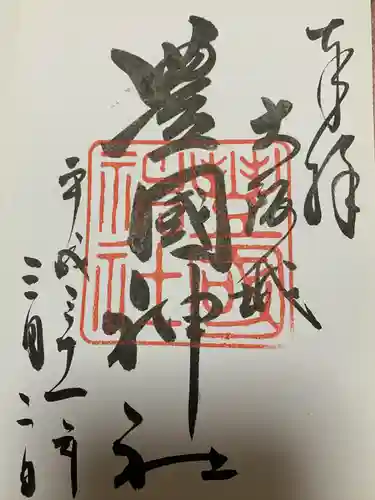 奉拝
大阪城
豊國神社
平成三十一年
三月二日
豊國神社